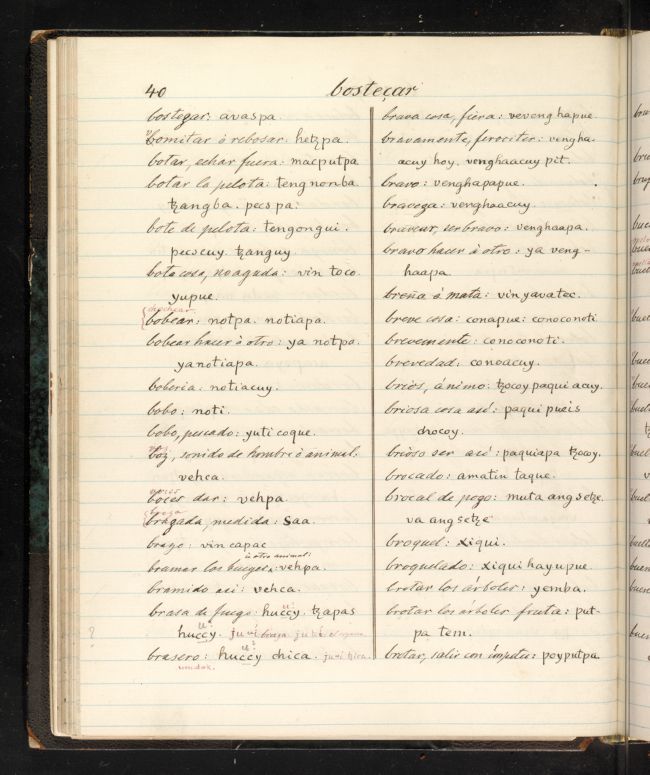 40
bosteçar
bostezar: avaspa.
bomitar ò rebosar: hetzpa.
botar, echar fuera: macputpa
botar la pelota: tengnonba
tzangba. pecspa:
bote de pelota: tengongui.
pecscuy. tzanguy
bota cosa, no aguda: vin toco
yupue.
bobear: notpa. notiapa.
bobear hacer à otro: ya notpa.
yanotiapa.
boberia: notiacuy.
bobo: noti.
bobo, pescado: yuti coque.
boz, sonido de hombre ò animal:
vehca.
voces
boces dar: vehpa.
braza
bragada, medida: saa.
brazo: vin capac
à otro animal:
bramar los bueyes: vehpa.
bramido asi: vehca.
brasa de fuego: huccy. tzapas
huccy.
brasero: huccy chica.
brava cosa, fiera: veveng hapue.
bravamente, ferociter: vengha-
acuy hoy. venghaacuy pit.
bravo: venghapapue.
braveza: venghaacuy.
bravear, ser bravo: venghaapa.
bravo hacer à otro: ya veng-
haapa
breña ó mata: vinyavatec.
breve cosa: conapue: conoconoti
brevemente: conoconoti.
brevedad: conoacuy.
brios, ánimo: tzocoy paqui acuy.
briosa cosa asi: paqui pueis
chocoy.
brioso ser asi: paquiapa tzocoy.
brocado: amatin taque.
brocal de pozo: muta ang setze.
va ang setze
broquel: xiqui.
broquelado: xiqui hayupue.
brotar los árboles: yemba.
brotar los arboles fruta: put-
pa tem.
brotar, salir con impetu: poyputpa